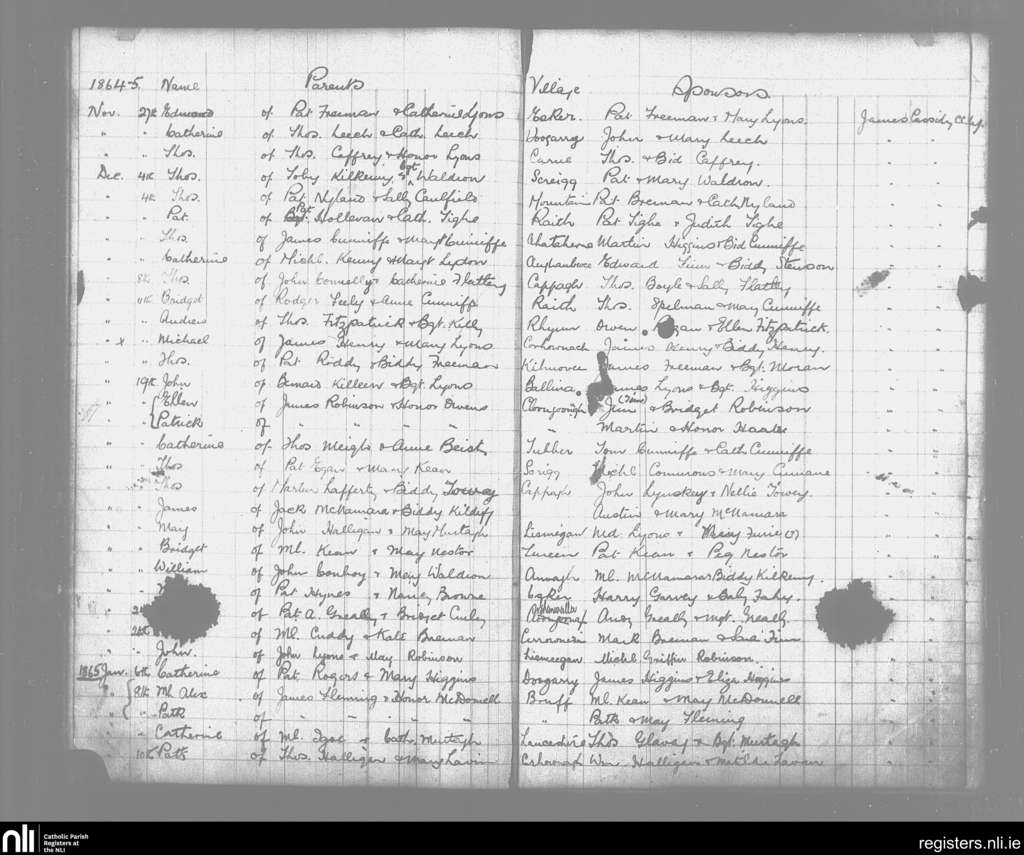 1864-5. Name Parents Village Sponsors
Nov. 27th Edmund of Pat Freeman & Catherine Lyons Esker. Pat Freeman & Mary Lyons. James Cassidy CC
" " Catherine of Thos. Leech & Cath Leech Doogarry John & Mary Leech " "
" " Thos. of Thos. Caffrey & Honor Lyons Currie Thos. & Bid Caffrey. " "
Dec. 4th Thos. of Toby Kilkenny & Bgt Waldron Screigg Pat & Mary Waldron. " "
" 4th Thos. of Pat Nyland & Sally Caulfield Mountain Pat Brennan & Cath Nyland " "
" " Pat. of Pat Hollevan & Cath. Tighe Raith Pat Tighe & Judith Tighe
" " Thos. of James Cunniffe & Mary Cunniffe Martin Higgins & Bid Cunniffe
" " Catherine of Michl. Kenny & Margt Lydon Edward Finn & Biddy Stenson
" 8th Thos. of John Connolly & Catherine Flattery Cappagh Thos. Boyle & Sally Flatty
" 11th Bridget of Rodger Feely & Anne Cunniffe Raith Thos. Spelman & Mary Cunniffe
" " Andrew of Thos. Fitzpatrick & Bgt. Kelly Rhynn Owen & Ellen Fitzpatrick.
" x " Michael of James Henry & Mary Lyons James Henry & Biddy Henry.
" " Thos. of Pat Roddy & Biddy Freeman Kilmovee James Freeman & Bgt. Moran
" 19th John of Bernard Killeen & Bgt. Lyons Ballina James Lyons & Bgt. Higgins
" " Ellen of James Robinson & Honor Owens Jim & Bridget Robinson
" " Patrick of " " " " " Martin & Honor
" " Catherine of Thos Meigh & Anne Beirt Tulber Tom Cunniffe & Cath Cunniffe
" " Thos of Pat Egan & Mary Kean Michl & Mary
" " Thos of Martin Lafferty & Biddy Towey Cappagh John Lynskey & Nellie Towey.
" " James of Jack McNamara & Biddy Kilduff Austin & Mary McNamara
" " May of John Halligan & May Murtagh Lismeegan Md. Lyons & (?)
" " Bridget of Ml. Kean & May Nestor Lureen Pat Kean & Peg Nestor
" " William of John Conboy & Mary Waldron Annagh Ml. McNamara & Biddy Kilkenny.
" of Pat Hynes & Nancy Browne Esker Harry Garvey & Baby Fahey.
" 2 of Pat. A. Greally & Bridget Curley Andy Greally & Mgt. Greally.
" of Ml. Cuddy & Kate Brennan Mark Brennan & Finn
" " John. of John Lyons & May Robinson Lismeegan Michl. Griffin Robinson.
1865 Jan. 6th Catherine of Pat. Rogers & Mary Higgins Doogarry James Higgins & Eliza Higgins
" 8th Ml. Alex of James Fleming & Honor McDonnell Bruff Ml. Kean & May McDonnell
" " Patk of " " " " " Patk & May Fleming
" " Catherine of Ml. Igoe & Cath. Murtagh Lancashire Thos Glavey & Bgt. Murtagh
" 10th Patk of Thos. Halligan & Mary Lavin Wm. Halligan & Matilda Lavan
nli Catholic Parish
Registers at
the NLI
registers.nli.ie